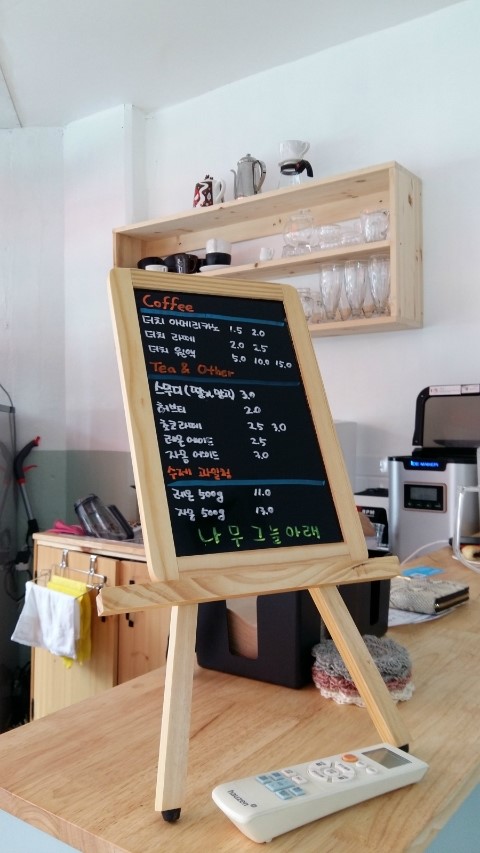 Coffee
더치 아메리카노 1.5 2.0
더치 라떼 2.0 2.5
더치 원액 5.0 10.0 15.0
Tea & Other
스무디 (딸기, 망고) 3.0
허브티 2.0
초코라떼 2.5 3.0
레몬에이드 2.5
자몽에이드 3.0
수제 과일청
레몬 500g 11.0
자몽 500g 13.0
나무그늘아래
hauzen